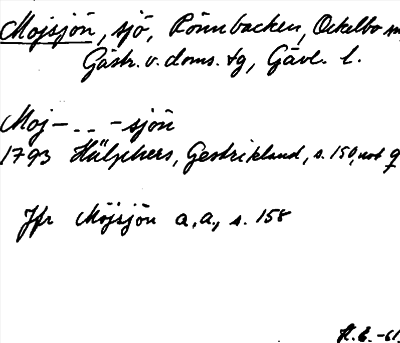 Mojsjön, sjö, Rönnbacken, Ockelbo
Gästr. v. doms. tg, Gävl. l.
Moj- .. -sjön
1793 Hülphers, Gestrikland, s. 150, not 9
Jfr Möjsjön a.a., s. 158
H.E. -61